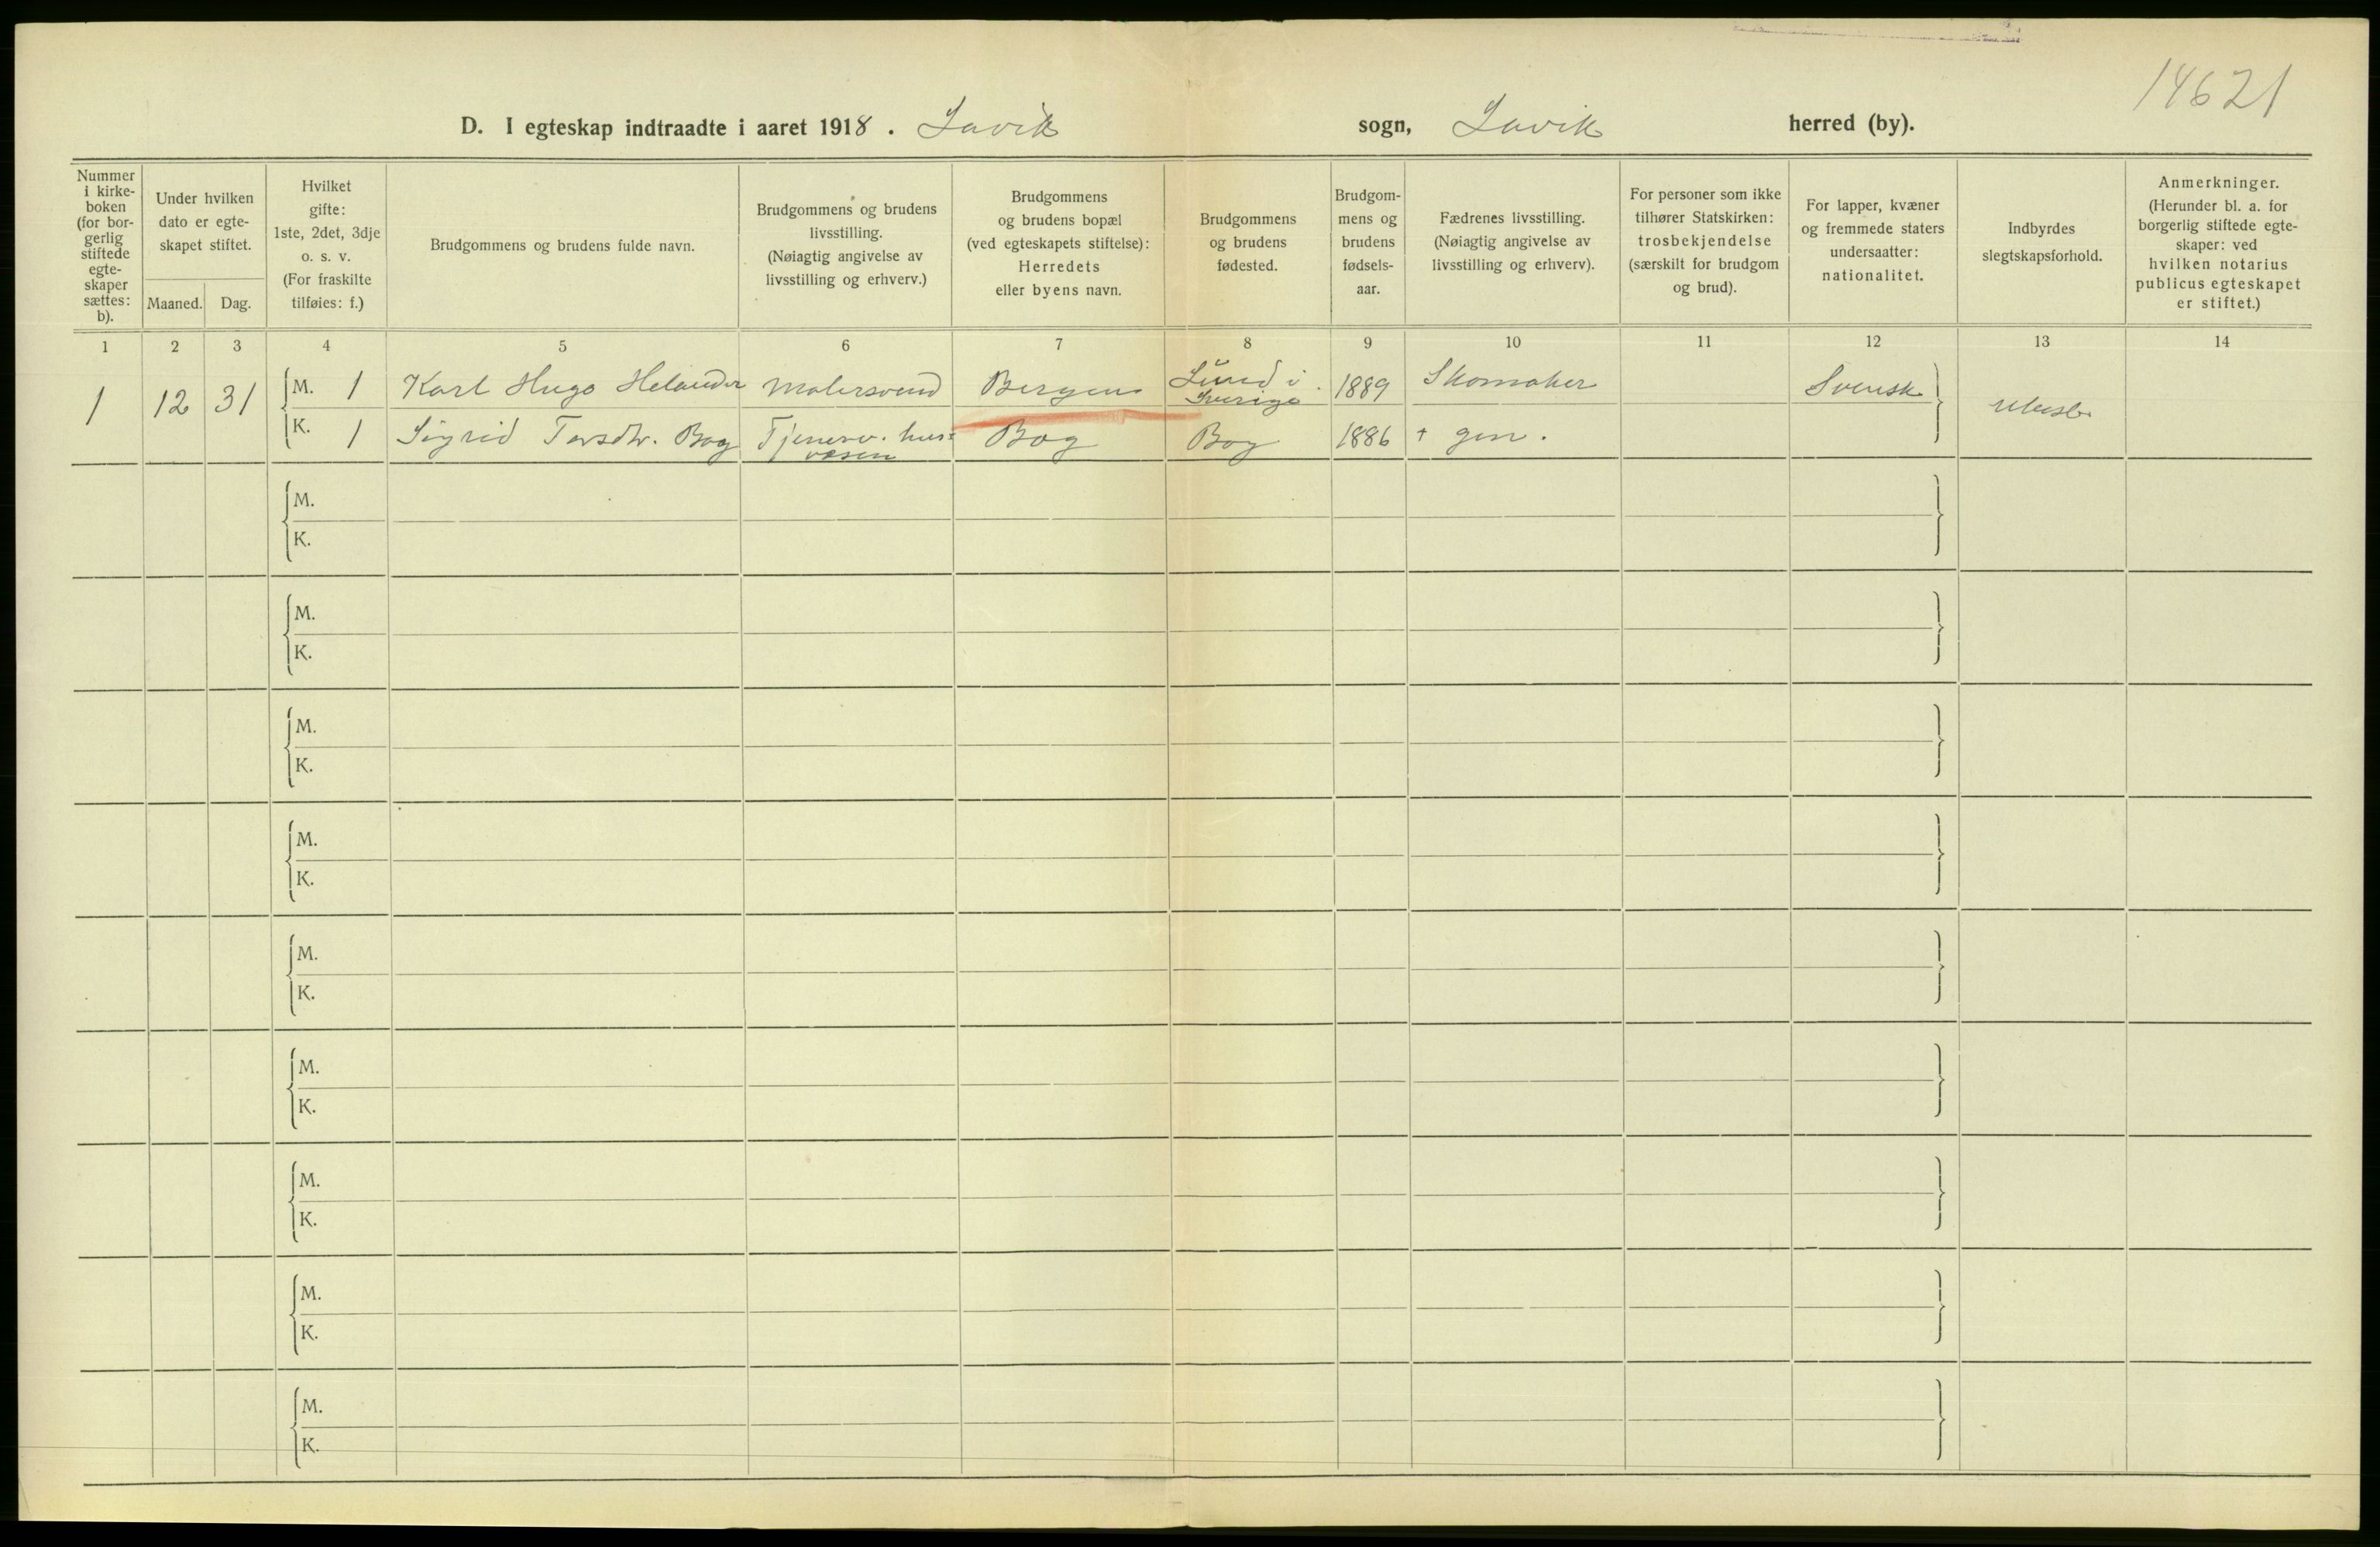 14621
D. I egteskap indtraadte i aaret 1918. Lavik sogn, Lavik herred (by).
Nummer i kirke-boken (for bor-gerlig stiftede egte-skaper sættes: b).
Under hvilken dato er egte-skapet stiftet.
Maaned. Dag.
Hvilket gifte: 1ste, 2det, 3dje o. s. v. (For fraskilte tilføies: f.)
Brudgommens og brudens fulde navn.
Brudgommens og brudens livsstilling. (Nøiagtig angivelse av livsstilling og erhverv.)
Brudgommens og brudens bopæl (ved egteskapets stiftelse): Herredets eller byens navn.
Brudgommens og brudens fødested.
Brudgom-mens og brudens fødsels-aar.
Fædrenes livsstilling. (Nøiagtig angivelse av livsstilling og erhverv).
For personer som ikke tilhører Statskirken: trosbekjendelse (særskilt for brudgom og brud).
For lapper, kvæner og fremmede staters undersaatter: nationalitet.
Indbyrdes slegtskapsforhold.
Anmerkninger. (Herunder bl. a. for borgerlig stiftede egte-skaper: ved hvilken notarius publicus egteskapet er stiftet.)
1 2 3 4 5 6 7 8 9 10 11 12 13 14
1 12 31 M. 1 Karl Hugo Helander Malersvend Bergen Lund i Sverige 1889 Skomaker Svensk Ubesl.
K. 1 Sigrid Bog Tjener v. hus-væsen Bog Bog 1886 + gm.
M.
K.
M.
K.
M.
K.
M.
K.
M.
K.
M.
K.
M.
K.
M.
K.
M.
K.